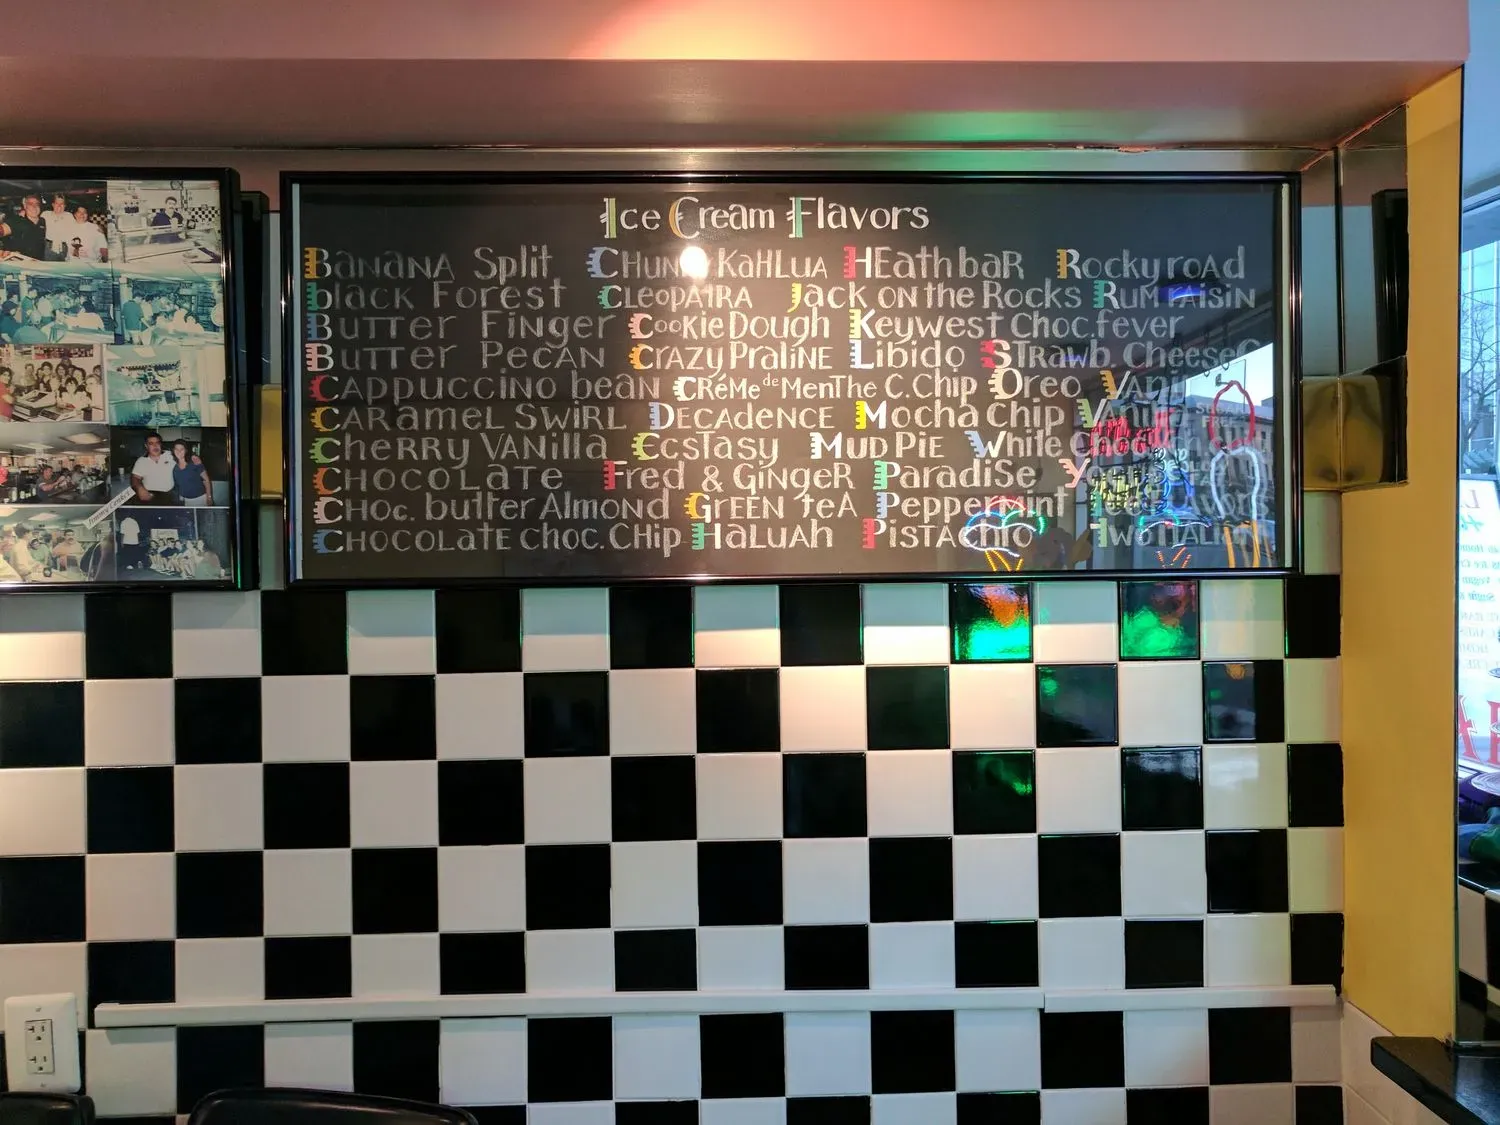 Ice Cream Flavors
Banana Split Chunky Kahlua Heath baR Rocky roAd
black Forest Cleopatra Jack on the Rocks Rum raisin
Butter Finger Cookie Dough Keywest Choc. fever
Butter Pecan Crazy Praline Libido Strawb. Cheese
Cappuccino bean Créme de Menthe C. Chip Oreo
Caramel Swirl Decadence Mocha Chip
Cherry Vanilla Ecstasy Mud Pie White
Chocolate Fred & Ginger Paradise
Choc. butter Almond Green tea Peppermint
Chocolate choc. Chip Haluah Pistachio